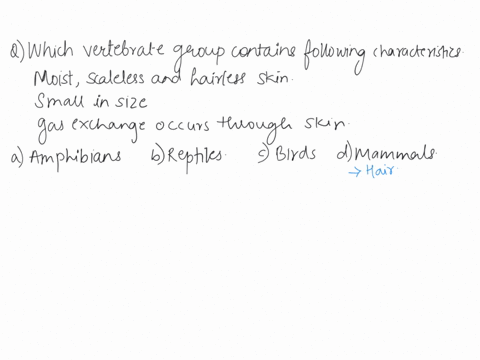 Q) Which vertebrate group contains following characteristics.
Moist, scaleless and hairless skin.
Small in size
gas exchange occurs through skin.
a) Amphibians b) Reptiles. c) Birds d) Mammals.
→ Hair